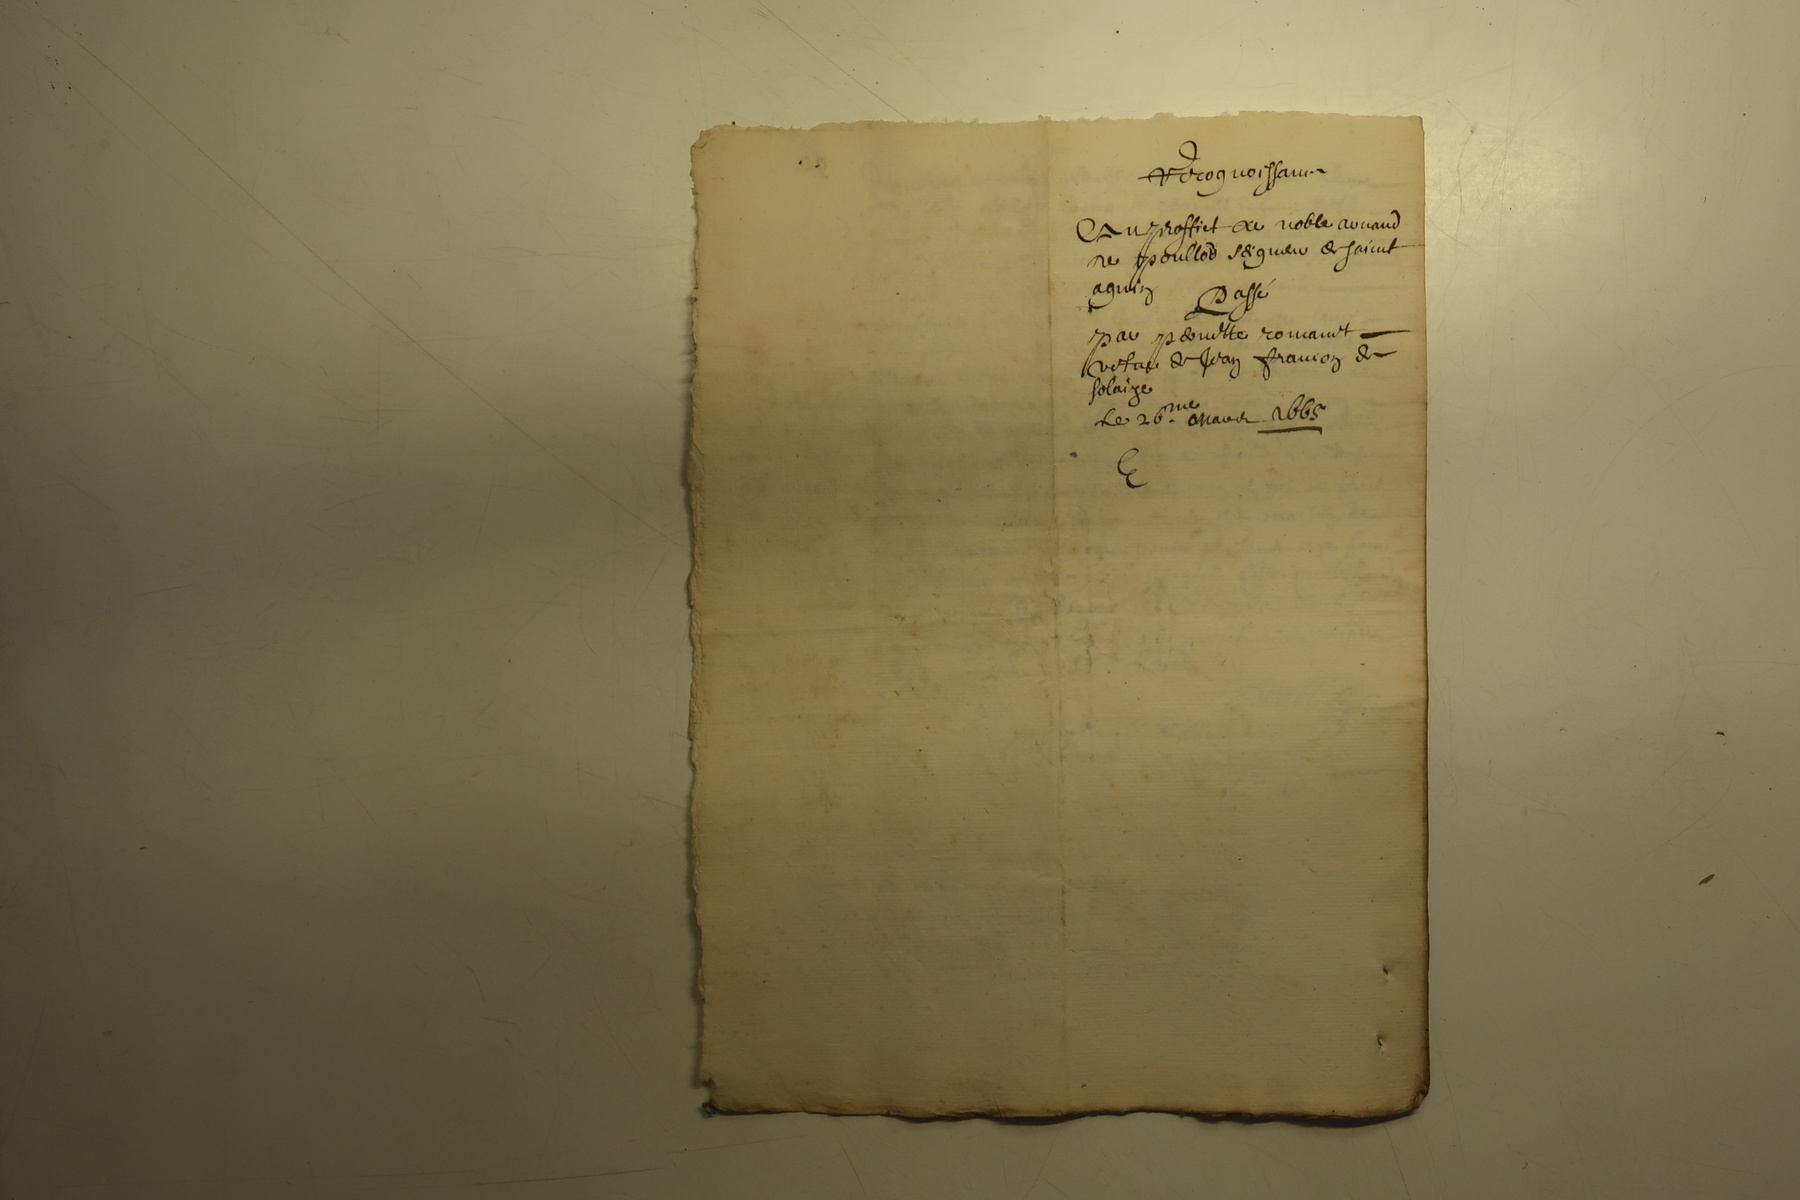 Recognoissance
Au proffict de noble arnaud
de poullod seigneur de saint
aguin Passé
par pernette romanet
vefue de Jean francon de
solaize
Le 26.me mars 1665